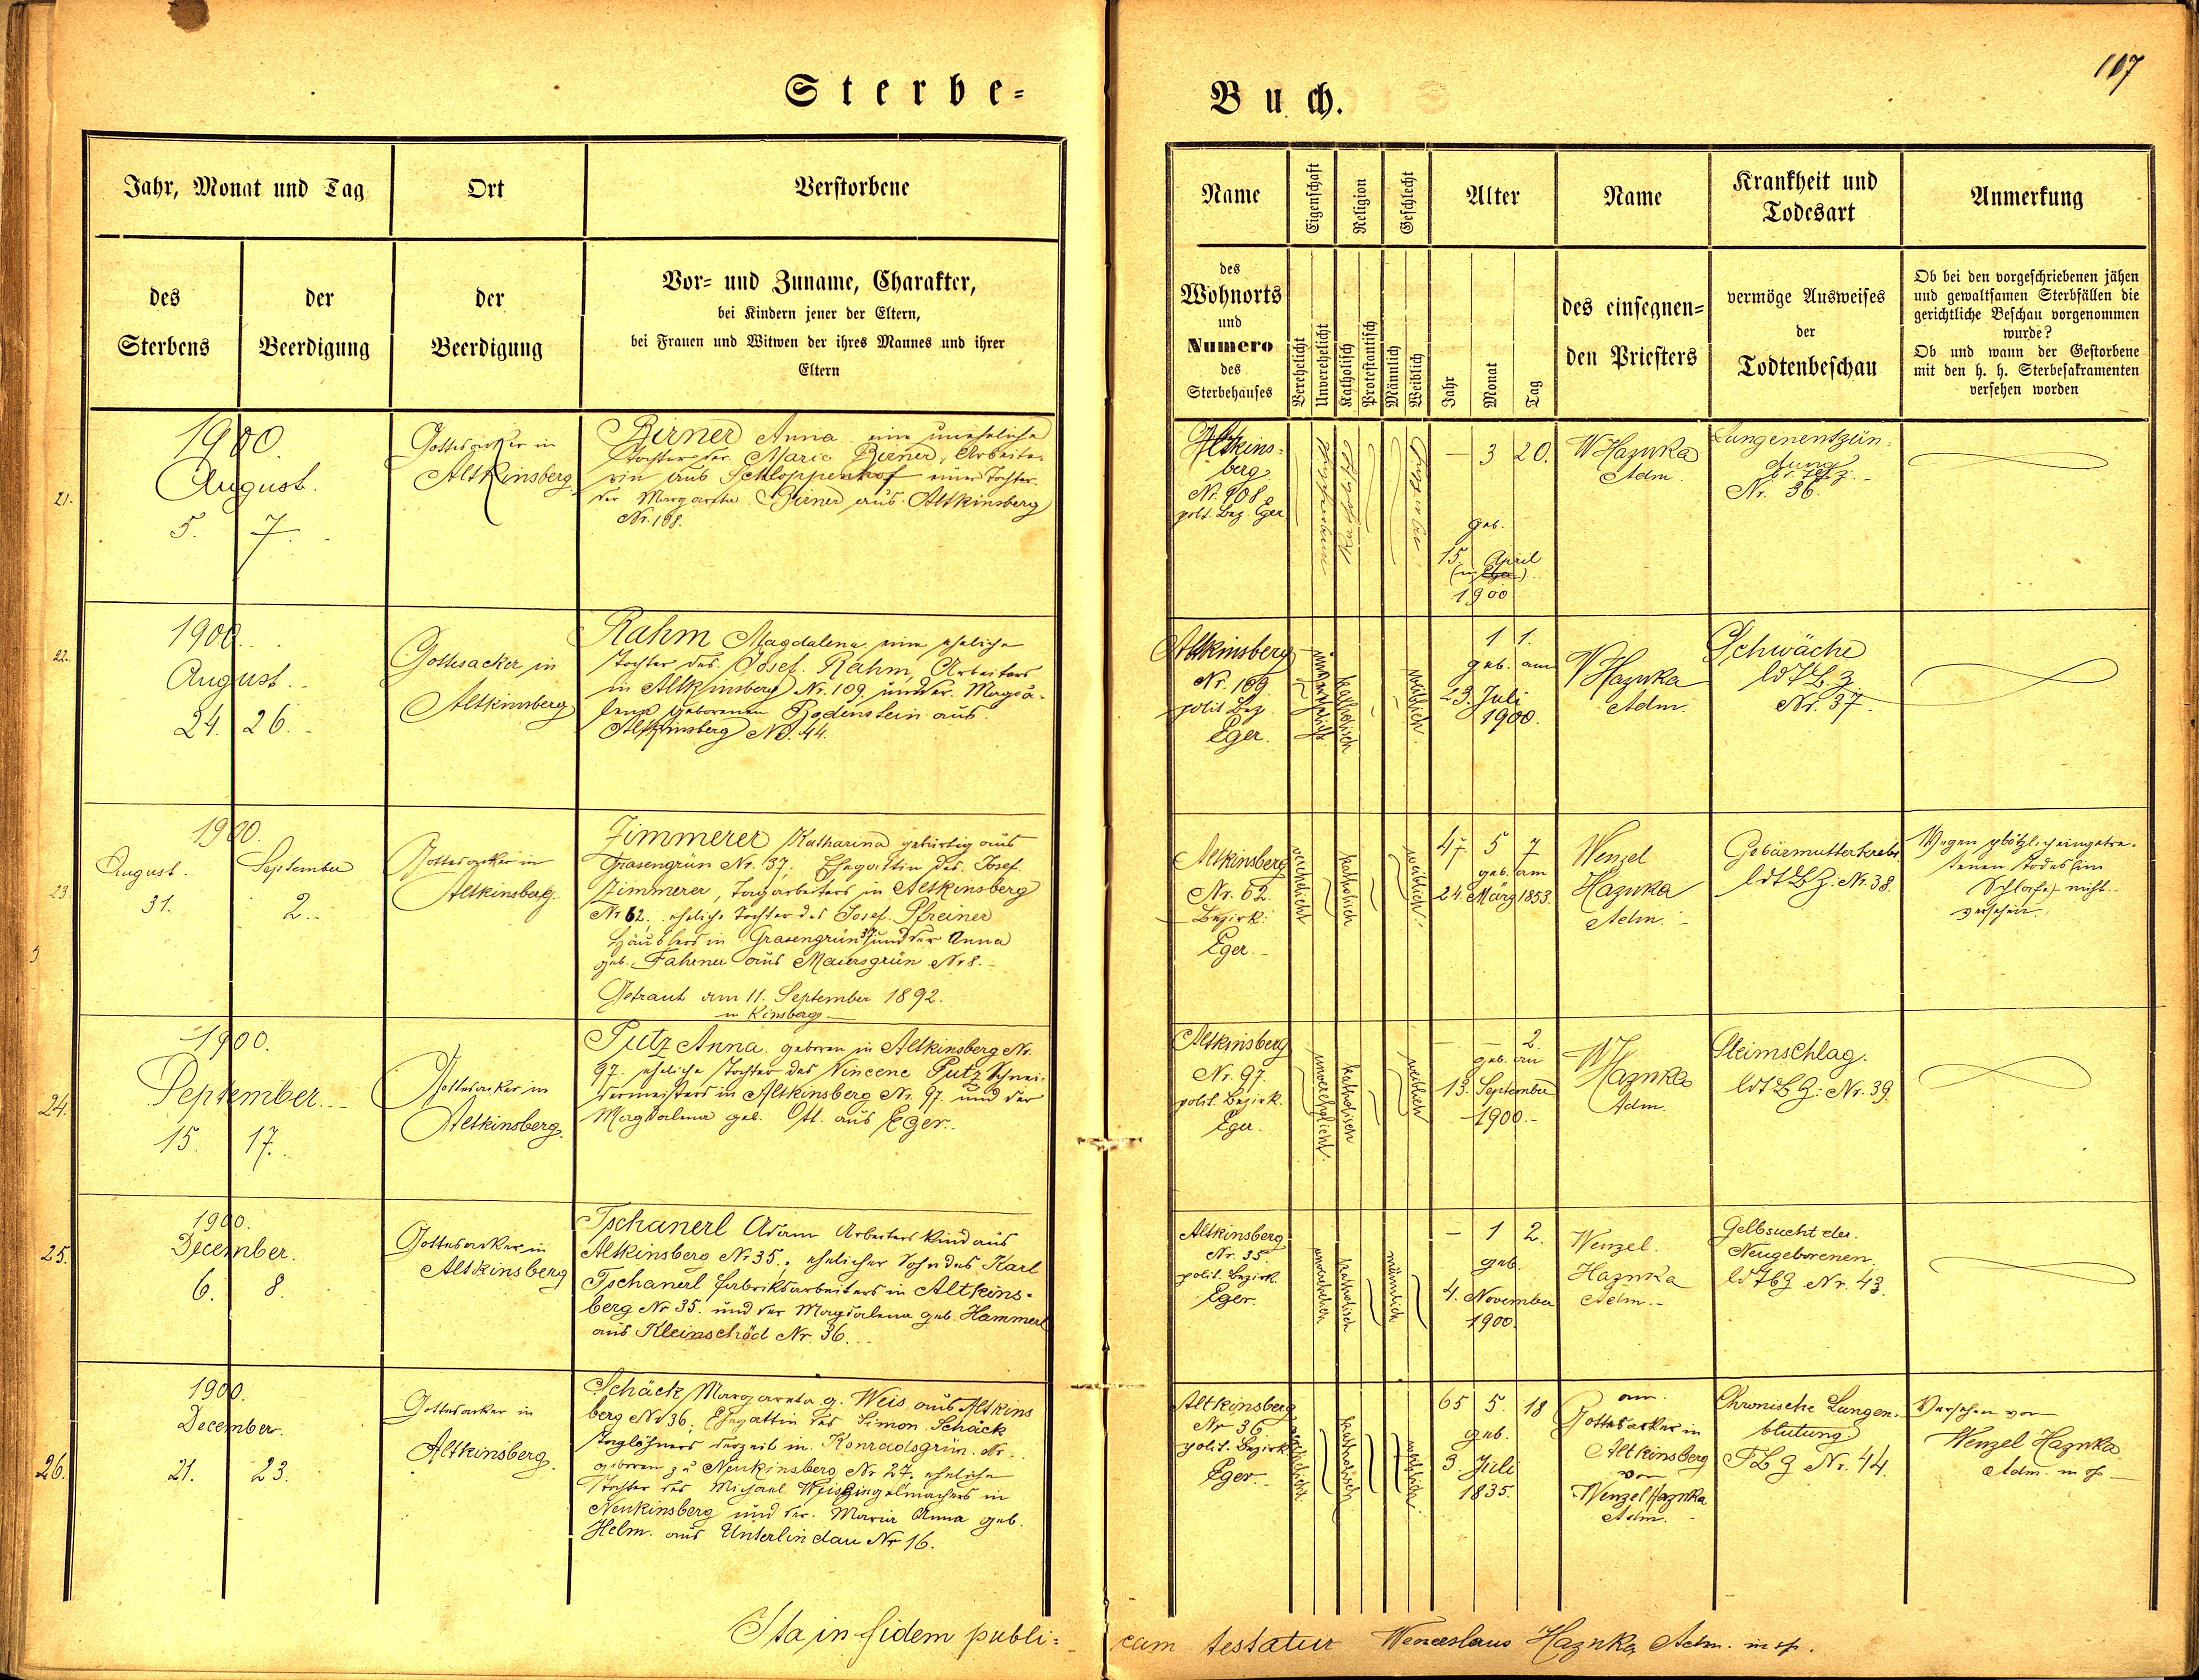 107
Sterbe=
Buch.
Jahr, Monat und Tag
Ort
Verstorbene
des
Sterbens
der
Beerdigung
der
Beerdigung
Vor= und Zuname, Charakter,
bei Kindern jener der Eltern,
bei Frauen und Witwen der ihres Mannes und ihrer
Eltern
Name
Eigenschaft
Religion
Geschlecht
Alter
Name
Krankheit und
Todesart
Anmerkung
des
Wohnorts
und
Numero
des
Sterbehauses
Verehelicht
Unverehelicht
Katholisch
Protestantisch
Männlich
Weiblich
Jahr
Monat
Tag
des einsegnen=
den Priesters
vermöge Ausweises
der
Todtenbeschau
Ob bei den vorgeschriebenen jähen
und gewaltsamen Sterbfällen die
gerichtliche Beschau vorgenommen
wurde?
Ob und wann der Gestorbene
mit den h. h. Sterbesakramenten
versehen worden
21.
1900.
August.
5. 7.
Gottesacker in
Altkinsberg
Birner Anna eine uneheliche
Tochter der Maria Birner, Arbeite-
rin aus Schloppenhof einer Tochter
der Margaretha Birner aus Altkinsberg
Nr. 108.
Altkins-
berg
Nr. 108
polit. Bez. Eger
– 3 20.
geb.
15. April
1900
W Hazuka
Adm.
Lungenentzün-
dung
Nr. 36.
22.
1900.
August.
24. 26.
Gottesacker in
Altkinsberg
Rahm Magdalena eine eheliche
Tochter des Josef Rahm, Arbeiters
in Altkinsberg Nr. 109 und der Magda-
lena geborenen Bodenstein aus
Altkinsberg No. 44.
Altkinsberg
Nr. 109.
polit. Bez.
Eger.
unverehelicht
katholisch
weiblich.
1 1.
geb. am
23. Juli
1900.
W Hazuka
Adm.
Schwäche
Nr. 37.
23.
1900.
August. September
31. 2.
Gottesacker in
Altkinsberg.
Zimmerer Katharina gebürtig aus
Grasengrün Nr. 37, Ehegattin des Josef
Zimmerer, Tagarbeiters in Altkinsberg
Nr. 62, eheliche Tochter des Josef Pfreiner
Häuslers in Grasengrün 37 und der Anna
geb. Fahrner aus Maiersgrün Nr 8.
Getraut am 11. September 1892.
in Kinsberg
Altkinsberg
Nr. 62.
Bezirk:
Eger.
verehelicht
katholisch
weiblich.
47 5 7
geb. am
24. März 1853.
Wenzel
Hazuka
Adm.
Gebärmutterkrebs
ldtBZ. Nr. 38.
Wegen plötzlich eingetre-
tenen Todes (im
Schlafe) nicht
versehen.
24.
1900.
September.
15. 17.
Gottesacker in
Altkinsberg.
Putz Anna geboren in Altkinsberg Nr.
97. eheliche Tochter des Vincenc Putz Schnei-
dermeisters in Altkinsberg Nr. 97 und der
Magdalena geb. Ott. aus Eger.
Altkinsberg
Nr. 97.
polit. Bezirk.
Eger.
unverehelicht.
katholisch
weiblich
– – 2.
geb. am
13. September
1900.
W Hazuka
Adm.
Steimschlag.
ldtBZ: Nr. 39.
25.
1900.
December.
6. 8.
Gottesacker in
Altkinsberg
Tschanerl Adam Arbeiterskind aus
Altkinsberg Nr. 35., ehelicher Sohn des Karl
Tschanerl Fabriksarbeiters in Altkins-
berg Nr 35. und der Magdalena geb. Hammerl
aus Kleinschöd Nr. 36.
Altkinsberg
Nr. 35
polit. Bezirk.
Eger.
katholisch
männlich
– 1 2.
geb.
4. November
1900.
Wenzel
Hazuka
Adm.
Gelbsucht der
Neugeborenen.
ldtbZ Nr. 43.
26.
1900.
December.
21. 23.
Gottesacker in
Altkinsberg.
Schäck Margareta g. Weis aus Altkins
berg No 36, Ehegattin des Simon Schäck
Taglöhners derzeit in Konradsgrün. Nr.
geboren zu Neukinsberg Nr 27. eheliche
Tochter des Michael Weis Zingelmachers in
Neukinsberg und der Maria Anna geb.
Helm. aus Unterlindau Nr 16.
Altkinsberg
Nr 36
polit. Bezirk
Eger.
verehelicht
katholisch
weiblich
65 5. 18
geb.
3. Juli
1835.
am
Gottesacker in
Altkinsberg
von
Wenzel Hazuka
Adm.
Chronische Lungen-
blutung
TBZ Nr. 44.
Versehen von
Wenzel Hazuka
Adm. m p.
Ita in fidem publi=
cam testatur Wenceslaus Hazuka Adm. m p.